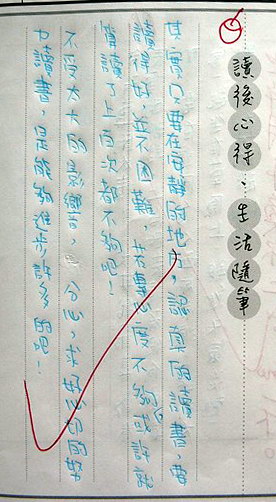 讀後心得、生活隨筆
其實只要在安靜的地方,認真的讀書,要
讀得好,並不困難,若專心度不夠或許就
讀了上百次都不夠吧!
不受太大的影響,分心,求好心切的努
力讀書,是能夠進步許多的吧!